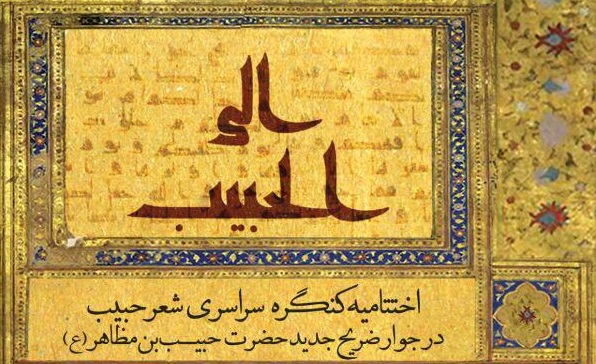 الی
الحبیب
اختتامیه کنگره سراسری شعر حبیب
در جوار ضریح جدید حضرت حبیب بن مظاهر (ع)